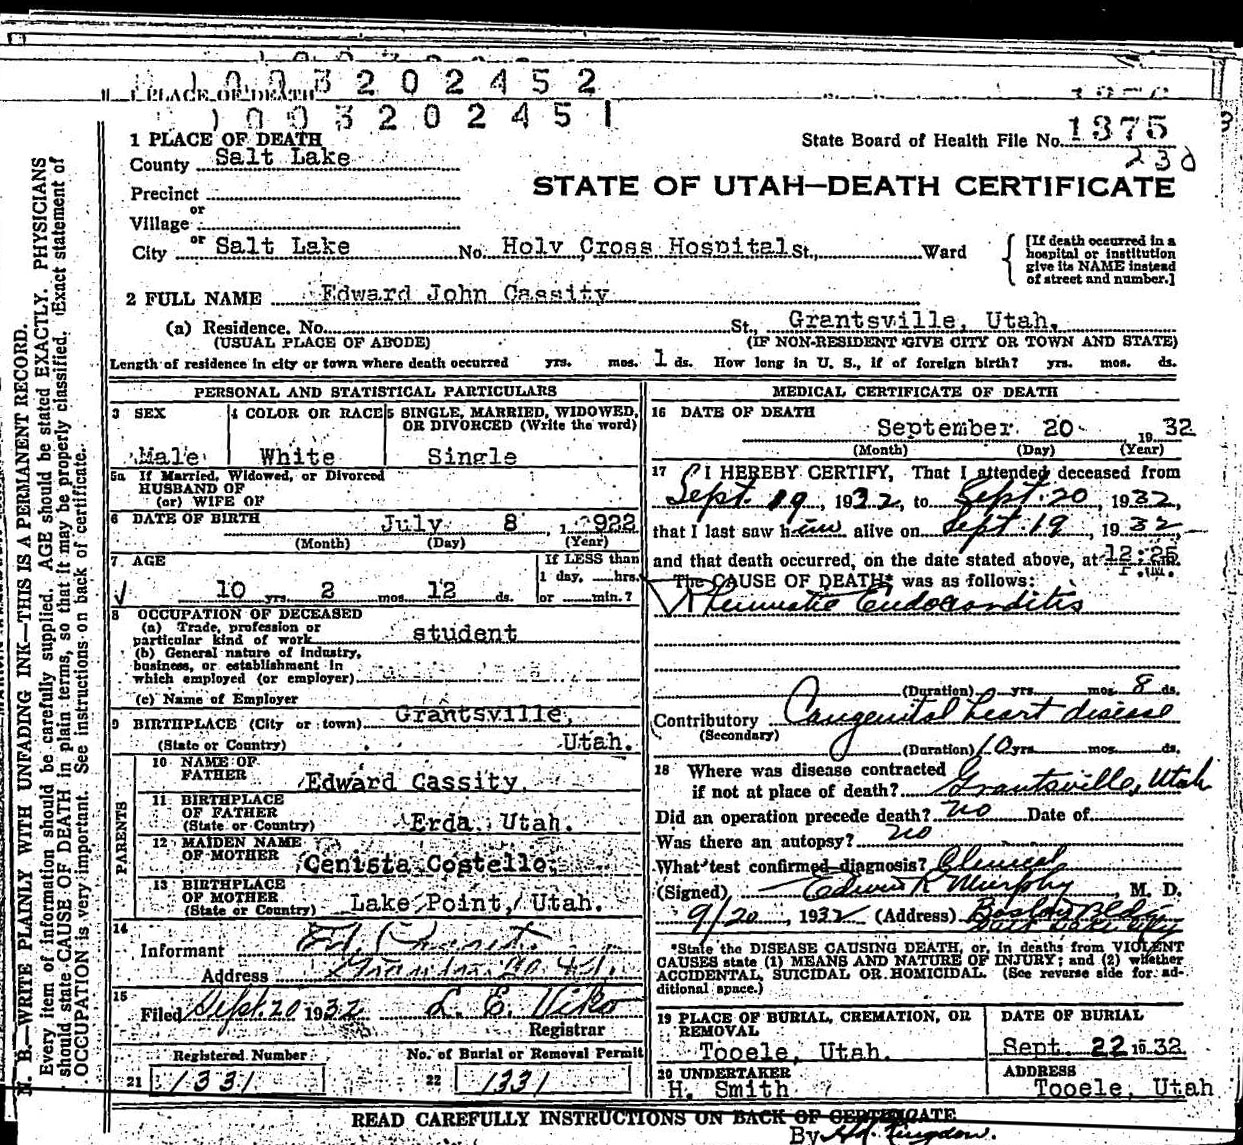 1003202452
1 PLACE OF DEATH
1003202451
1 PLACE OF DEATH
State Board of Health File No. 1375
230
County Salt Lake
STATE OF UTAH—DEATH CERTIFICATE
Precinct
or
Village
or
City Salt Lake No. Holy Cross Hospital St., Ward
[If death occurred in a hospital or institution give its NAME instead of street and number.]
2 FULL NAME Edward John Cassity
(a) Residence. No. St., Grantsville, Utah.
(USUAL PLACE OF ABODE) (IF NON-RESIDENT GIVE CITY OR TOWN AND STATE)
Length of residence in city or town where death occurred yrs. mos. 1 ds. How long in U. S., if of foreign birth? yrs. mos. ds.
N. B.—WRITE PLAINLY WITH UNFADING INK—THIS IS A PERMANENT RECORD.
Every item of information should be carefully supplied. AGE should be stated EXACTLY. PHYSICIANS
should state CAUSE OF DEATH in plain terms, so that it may be properly classified. Exact statement of
OCCUPATION is very important. See instructions on back of certificate.
PERSONAL AND STATISTICAL PARTICULARS
3 SEX 4 COLOR OR RACE 5 SINGLE, MARRIED, WIDOWED,
OR DIVORCED (Write the word)
Male White Single
5a If Married, Widowed, or Divorced
HUSBAND OF
(or) WIFE OF
6 DATE OF BIRTH July 8, 1922
(Month) (Day) (Year)
7 AGE If LESS than
1 day, hrs.
10 yrs. 2 mos. 12 ds. or min.?
8 OCCUPATION OF DECEASED
(a) Trade, profession or
particular kind of work student
(b) General nature of industry,
business, or establishment in
which employed (or employer)
(c) Name of Employer
9 BIRTHPLACE (City or town) Grantsville,
(State or Country) Utah.
PARENTS
10 NAME OF
FATHER Edward Cassity
11 BIRTHPLACE
OF FATHER
(State or Country) Erda, Utah.
12 MAIDEN NAME
OF MOTHER Cenista Costello
13 BIRTHPLACE
OF MOTHER
(State or Country) Lake Point, Utah.
14
Informant
Address
15
Filed Sept. 20 1932 L. E. Viko
Registrar
Registered Number No. of Burial or Removal Permit
21 1331 22 1331
MEDICAL CERTIFICATE OF DEATH
16 DATE OF DEATH
September 20 1932
(Month) (Day) (Year)
17 I HEREBY CERTIFY, That I attended deceased from
Sept. 19, 1932, to Sept. 20, 1932,
that I last saw him alive on Sept 19, 1932,
and that death occurred, on the date stated above, at 12:25
P.M.
The CAUSE OF DEATH* was as follows:
Rheumatic Endocarditis
(Duration) yrs. mos. 8 ds.
Contributory Congenital heart disease
(Secondary)
(Duration) 10 yrs. mos. ds.
18 Where was disease contracted
if not at place of death? Grantsville, Utah
Did an operation precede death? no Date of
Was there an autopsy? no
What test confirmed diagnosis? Clinical
(Signed) Edwin R Murphy, M. D.
9/20, 1932 (Address) Boston Bldg
Salt Lake City
*State the DISEASE CAUSING DEATH, or, in deaths from VIOLENT
CAUSES state (1) MEANS AND NATURE OF INJURY; and (2) whether
ACCIDENTAL, SUICIDAL OR HOMICIDAL. (See reverse side for ad-
ditional space.)
19 PLACE OF BURIAL, CREMATION, OR
REMOVAL
Tooele, Utah.
DATE OF BURIAL
Sept. 22 1932
20 UNDERTAKER
H. Smith
ADDRESS
Tooele, Utah
READ CAREFULLY INSTRUCTIONS ON BACK OF CERTIFICATE
By